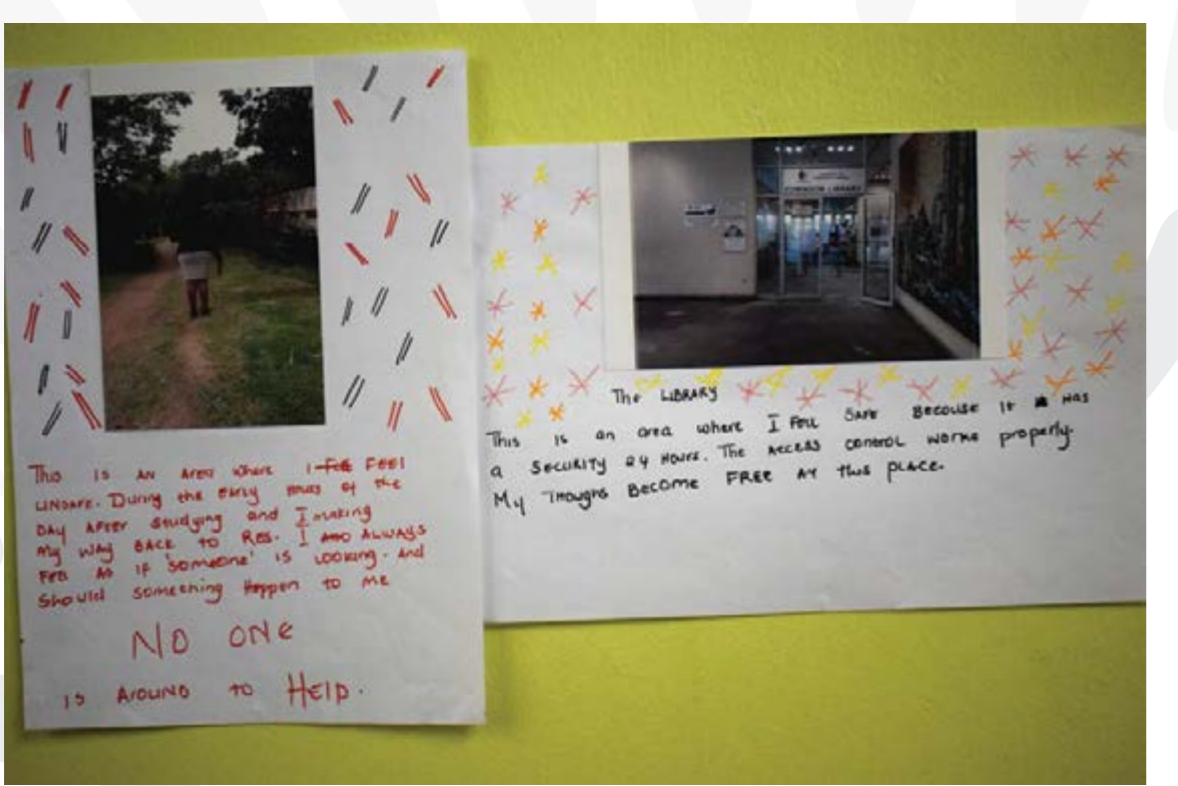 This is an Area where I feel
UNSAFE. During the early hours of the
Day after studying and I making
my way back to Res. I always
Feel As if 'someone' is looking. And
Should something Happen to me
NO ONE
is Around to Help.
COMMON LIBRARY
The LIBRARY
This is an area where I Feel Safe Because It has
a Security 24 Hours. The Access control works properly.
My Thoughs Become FREE At this place.